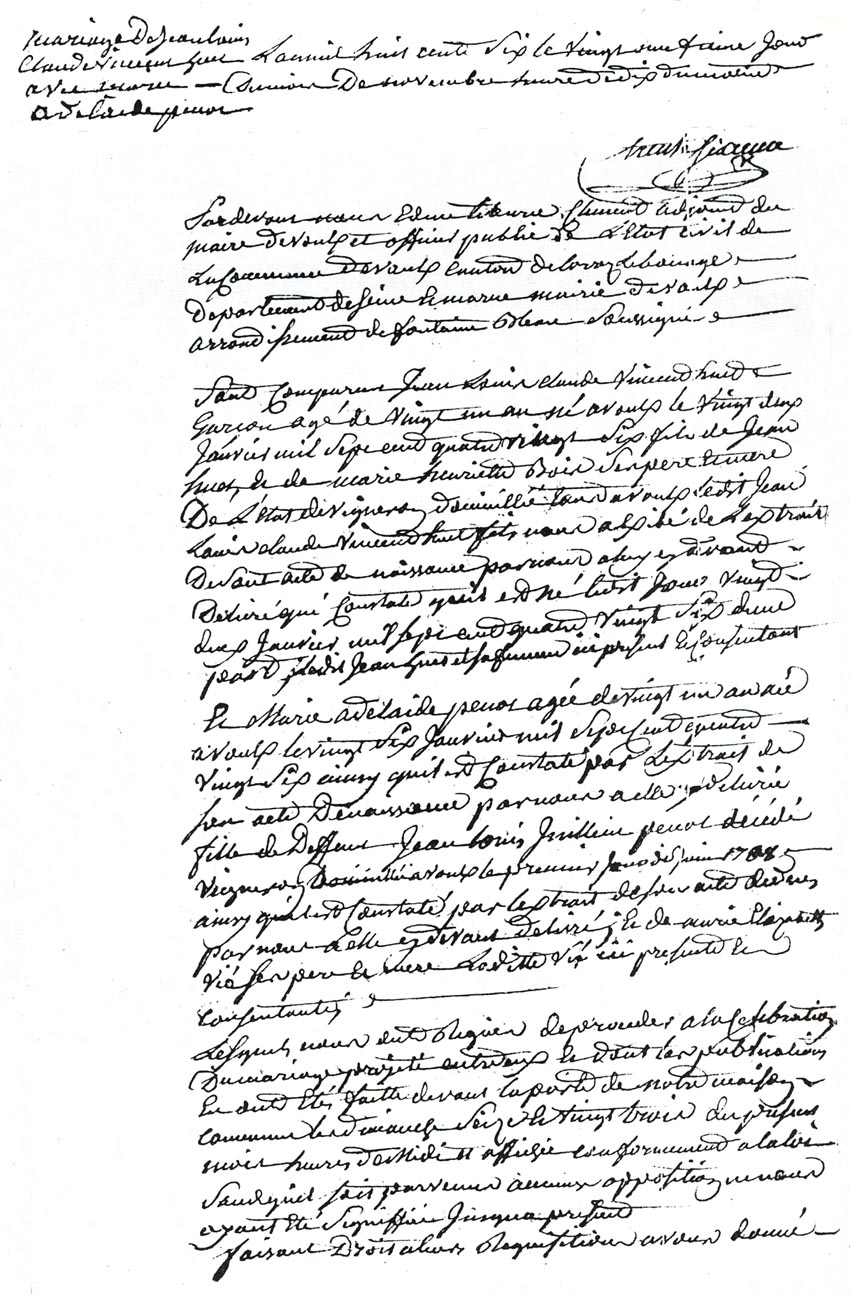 mariage De Jean louis
Claude Vincent huet
avec marie
adelaide penot
Lan mil huit cent Six le vingt
De novembre heure de dix du matin
Pardevant nous Edme Clement adjoint du
maire de voulx et officier public de L'Etat civil de
La Commune de voulx Canton de Lorez le bocage
Departement de Seine et marne mairie de voulx
arrondissement de fontaine bleau Soussigné
Sont Comparus Jean Louis Claude Vincent huet
Garçon agé de vingt un an né a voulx le vingt deux
Janvier mil Sept cent quatre vingt Six fils de Jean
huet et de marie henriette Bois Ses pere et mere
De L'Etat de vigneron domicillié a voulx ledit Jean
Louis Claude Vincent huet fils nous a de L'extrait
De Son acte de naissance par nous a luy cy devant
Delivré qui Constate qu'il est né ledit Jour vingt
deux Janvier mil Sept cent quatre vingt Six dune
part ledit Jean huet et Sa femme ici present et Consentant
Et Marie adelaide penot agée de vingt un an née
a voulx le vingt Six Janvier mil Sept Cent quatre
vingt Six ainsy qu'il est Constaté par L'extrait de
Son acte De naissance par nous a elle delivré
fille de Deffunt Jean louis penot décédé
vigneron Domicillié a voulx le premier Jour de Juin
ainsy qu'il est Constaté par Lextrait de Son acte de deces
par nous a elle cy devant Delivré et de marie Elizabeth
Vié Ses pere et mere Laditte Vié ici presente et
consentante
Lesquels nous ont Requis de proceder a la Celebration
Du mariage projeté entre eux et dont les publications
En ont Etés faitte devant la porte de notre maison
commune les dimanche Seize et vingt trois du present
mois heures de Midi et affiché conformement a la loi
Sans quil soit parvenu aucune opposition ne nous
ayant Eté Signiffiée Jusqua present
faisant Droit a leurs Requisition avons donné